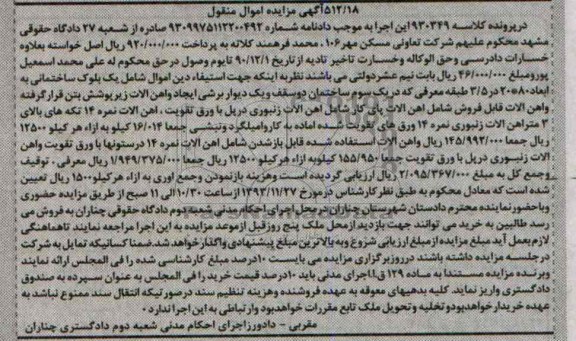 ۵۱۲/۱۸آگهی مزایده اموال منقول
درپرونده کلاسه ۹۳۰۳۴۹ این اجرا به موجب دادنامه شماره ۹۳۰۹۹۷۵۱۱۳۲۰۰۴۹۲ صادره از شعبه ۲۷ دادگاه حقوقی
مشهد محکوم علیهم شرکت تعاونی مسکن مهر ۱۰۶، محمد فرهمند کلاته به پرداخت ۹۲۰/۰۰۰/۰۰۰ ریال اصل خواسته بعلاوه
خسارات دادرسی وحق الوکاله وخسارت تاخیر تادیه از تاریخ ۹۰/۱۲/۱ تایوم وصول در حق محکوم له علی محمد اسمعیل
پورومبلغ ۴۶/۰۰۰/۰۰۰ ریال بابت نیم عشردولتی می باشند نظربه اینکه جهت استیفاء دین اموال شامل یک بلوک ساختمانی به
ابعاد۸۰*۲۰ در۳/۵ طبقه معرفی که دریک سوم ساختمان دوسقف ویک دیواربرشی ایجاد واهن الات زیرپوشش بتن قرارگرفته
واهن الات قابل فروش شامل اهن الات بدون کار شامل اهن الات زنبوری دریل با ورق تقویت ، اهن الات نمره ۱۴ تکه های بالای
۳ متراهن الات زنبوری نمره ۱۴ ورق های تقویت شده اماده به کاروامیلگرد ونبشی جمعا ۱۶/۰۱۴ کیلو به ازاء هر کیلو ۱۲۵۰۰
ریال جمعا ۱۴۵/۹۹۲/۰۰۰ ریال واهن الات استفاده شده قابل بازشدن شامل اهن الات نمره ۱۴ درستونها با ورق تقویت واهن
الات زنبوری دریل با ورق تقویت جمعا ۱۵۵/۹۵۰ کیلوبه ازاء هرکیلو ۱۲۵۰۰ ریال جمعا ۱/۹۴۹/۳۷۵/۰۰۰ ریال معرفی ، توقیف
وجمع کل به مبلغ ۲/۰۹۵/۳۶۷/۰۰۰ ریال ارزیابی گردیده است وهزینه بازنمودن وجمع اوری به ازاء هرکیلو۱۵۰۰ ریال تعیین
شده است که معادل محکوم به طبق نظر کارشناس درمورخ ۱۳۹۳/۱۱/۲۷ ازساعت ۱۰/۳۰ الی ۱۱ صبح از طریق مزایده حضوری
وباحضورنماینده محترم دادستان شهرستان چناران درمحل اجرای احکام مدنی شعبه دوم دادگاه حقوقی چناران به فروش می
رسد طالبین به خرید می توانند جهت بازدید ازمحل ملک پنج روزقبل ازموعد مزایده به این اجرا مراجعه نمایند تاهماهنگی
لازم بعمل آید مبلغ مزایده ازمبلغ ارزیابی شروع وبه بالاترین مبلغ پیشنهادی واگذار خواهد شد.ضمنا کسانیکه تمایل به شرکت
درجلسه مزایده داشته باشند درروزبرگزاری مزایده می بایست ۱۰درصد مبلغ کارشناسی شده را فی المجلس ارائه نمایند
وبرنده مزایده مستندا به ماده ۱۲۹ ق.ا.اجرای مدنی باید ۱۰درصد قیمت خرید را فی المجلس به عنوان سپرده به صندوق
دادگستری واریز نماید. کلیه بدهیهای معوقه به عهده فروشنده وهزینه تنظیم سند درصورتیکه انتقال سند ممنوع نباشد به
عهده خریدار خواهدبود وتخلیه و تحویل ملک تابع مقررات خواهدبود وارتباطی به این اجرا ندارد.
مقربی - دادورزاجرای احکام مدنی شعبه دوم دادگستری چناران